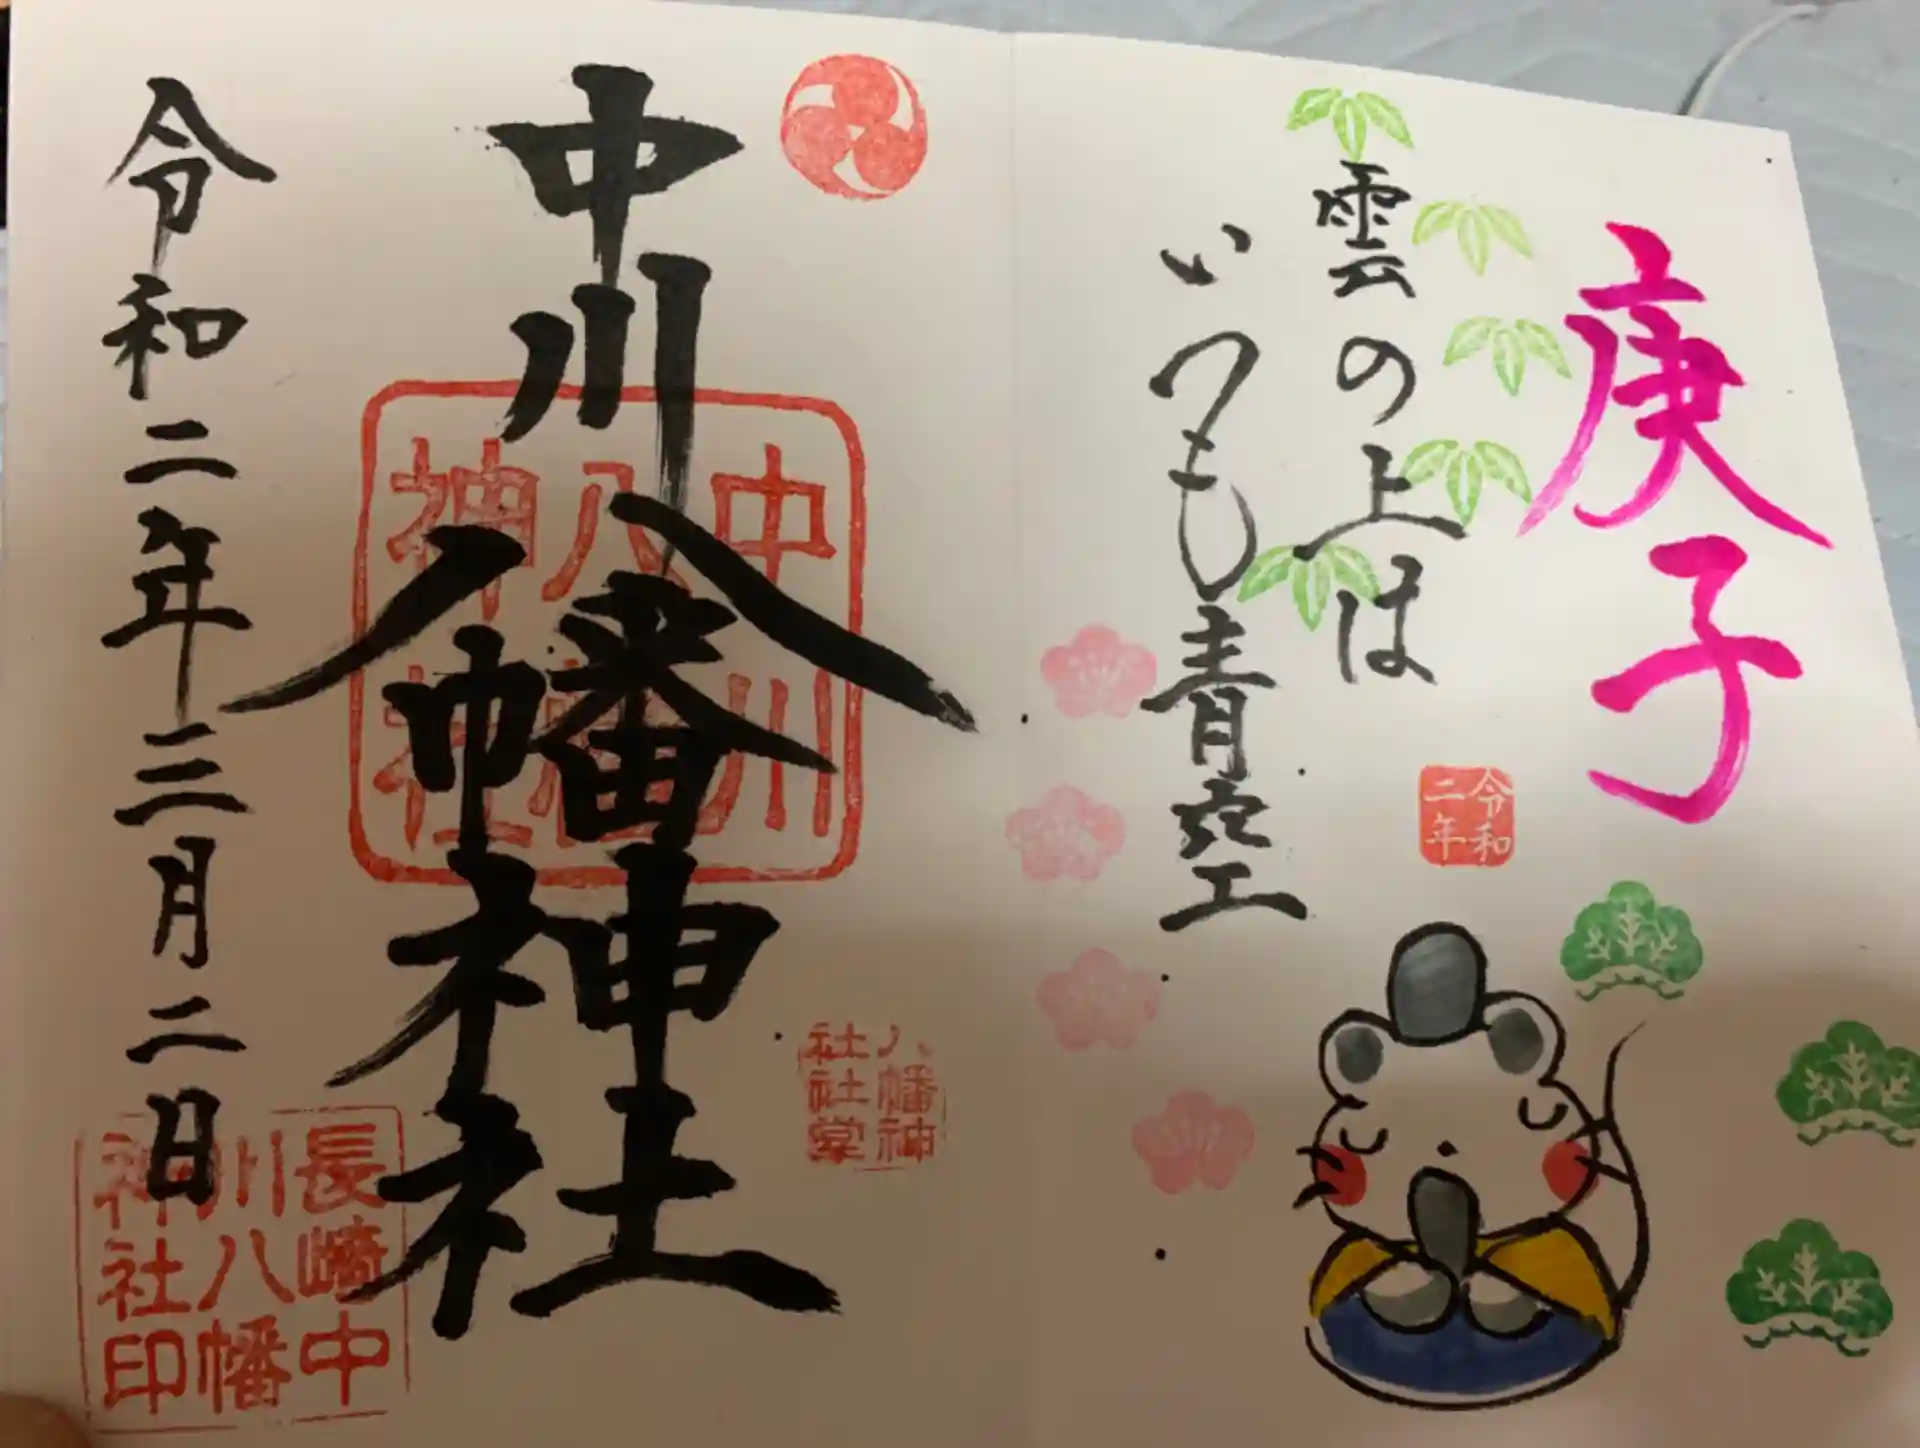 庚子
雲の上は
いつも青空
令和
二年
中川八幡神社
中川
八幡
神社
八幡神
社社堂
令和二年三月二日
長崎中
川八幡
神社印